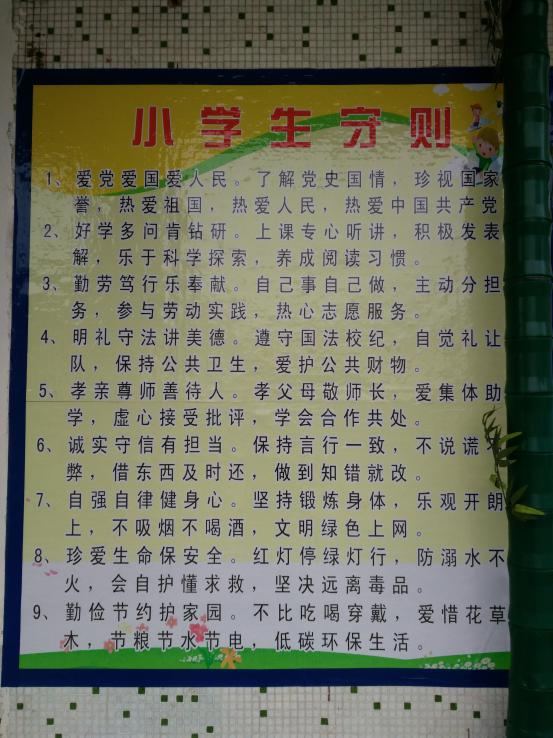 小学生守则
1、爱党爱国爱人民。了解党史国情，珍视国家
誉，热爱祖国，热爱人民，热爱中国共产党
2、好学多问肯钻研。上课专心听讲，积极发表
解，乐于科学探索，养成阅读习惯。
3、勤劳笃行乐奉献。自己事自己做，主动分担
务，参与劳动实践，热心志愿服务。
4、明礼守法讲美德。遵守国法校纪，自觉礼让
队，保持公共卫生，爱护公共财物。
5、孝亲尊师善待人。孝父母敬师长，爱集体助
学，虚心接受批评，学会合作共处。
6、诚实守信有担当。保持言行一致，不说谎不
弊，借东西及时还，做到知错就改。
7、自强自律健身心。坚持锻炼身体，乐观开朗
上，不吸烟不喝酒，文明绿色上网。
8、珍爱生命保安全。红灯停绿灯行，防溺水不
火，会自护懂求救，坚决远离毒品。
9、勤俭节约护家园。不比吃喝穿戴，爱惜花草
木，节粮节水节电，低碳环保生活。